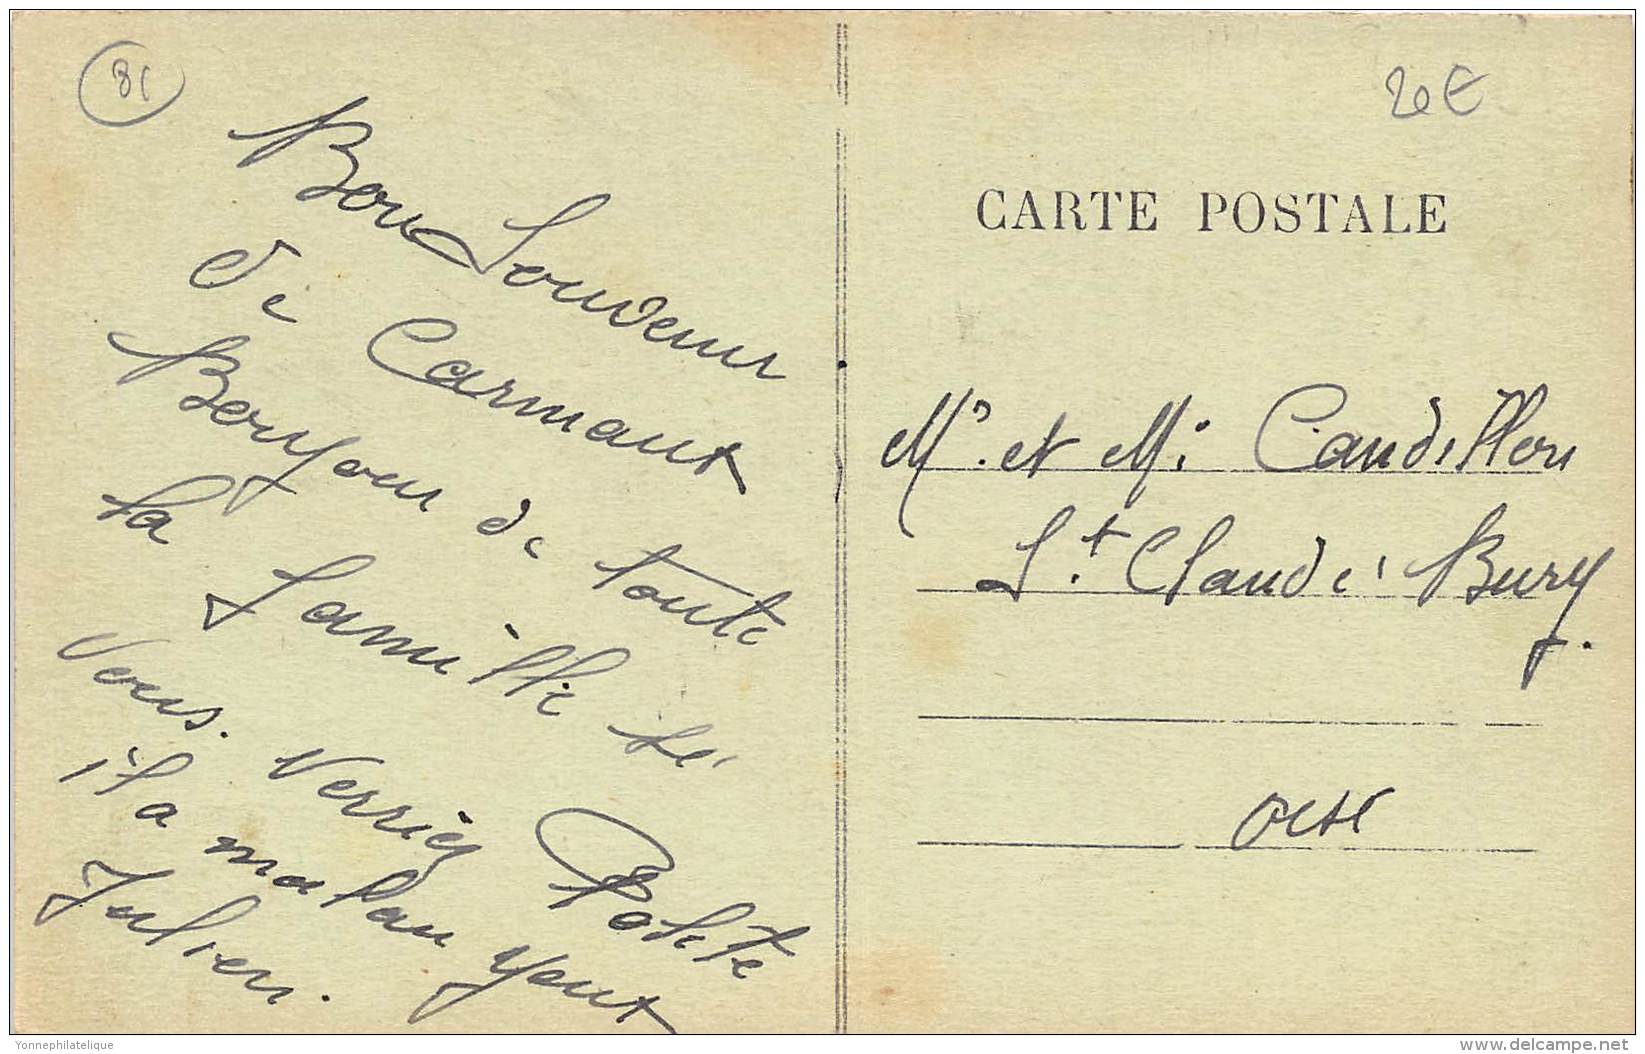 81
Bou Souvenir
de Carmaux
Bonjour de toute
la famille
vous.
il a mal au yeux
Julien.
20€
CARTE POSTALE
Mr. et Me Caudillon
St. Claude Bury.
Oise
Yonnephilatelique
www.delcampe.net